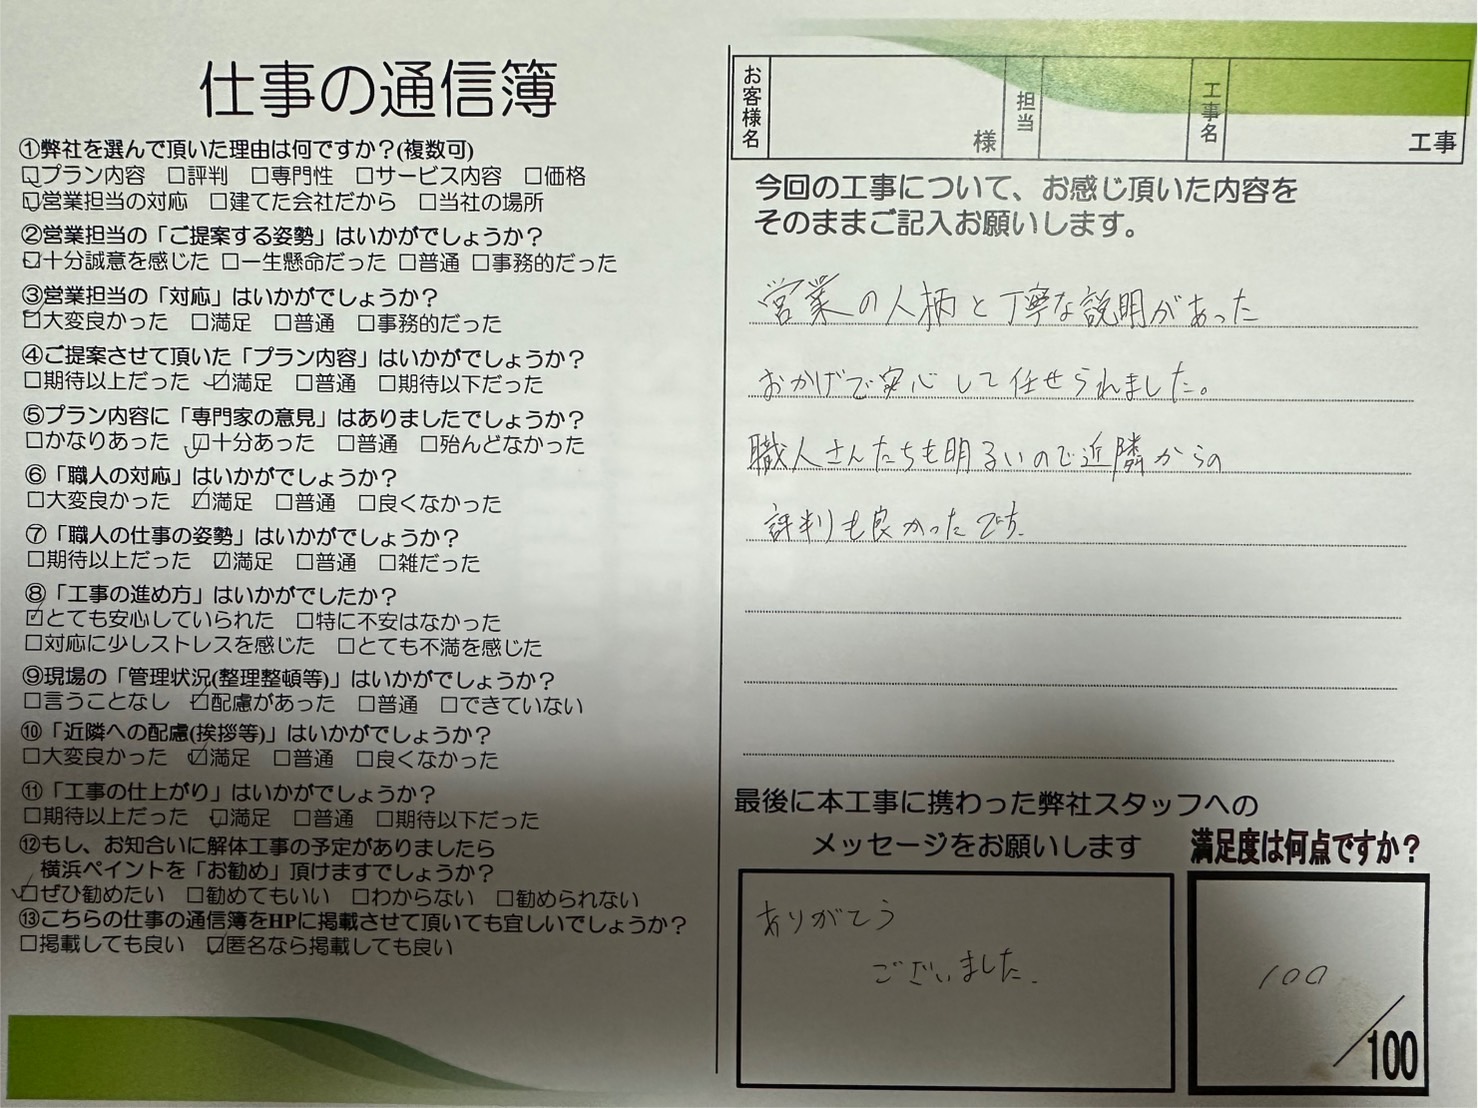 仕事の通信簿
①弊社を選んで頂いた理由は何ですか？(複数可)
☑プラン内容 □評判 □専門性 □サービス内容 □価格
☑営業担当の対応 □建てた会社だから □当社の場所
②営業担当の「ご提案する姿勢」はいかがでしょうか？
☑十分誠意を感じた □一生懸命だった □普通 □事務的だった
③営業担当の「対応」はいかがでしょうか？
☑大変良かった □満足 □普通 □事務的だった
④ご提案させて頂いた「プラン内容」はいかがでしょうか？
□期待以上だった ☑満足 □普通 □期待以下だった
⑤プラン内容に「専門家の意見」はありましたでしょうか？
□かなりあった ☑十分あった □普通 □殆んどなかった
⑥「職人の対応」はいかがでしょうか？
□大変良かった ☑満足 □普通 □良くなかった
⑦「職人の仕事の姿勢」はいかがでしょうか？
□期待以上だった ☑満足 □普通 □雑だった
⑧「工事の進め方」はいかがでしたか？
☑とても安心していられた □特に不安はなかった
□対応に少しストレスを感じた □とても不満を感じた
⑨現場の「管理状況(整理整頓等)」はいかがでしょうか？
□言うことなし ☑配慮があった □普通 □できていない
⑩「近隣への配慮(挨拶等)」はいかがでしょうか？
□大変良かった ☑満足 □普通 □良くなかった
⑪「工事の仕上がり」はいかがでしょうか？
□期待以上だった ☑満足 □普通 □期待以下だった
⑫もし、お知合いに解体工事の予定がありましたら
横浜ペイントを「お勧め」頂けますでしょうか？
☑ぜひ勧めたい □勧めてもいい □わからない □勧められない
⑬こちらの仕事の通信簿をHPに掲載させて頂いても宜しいでしょうか？
□掲載しても良い ☑匿名なら掲載しても良い
お客様名 様 担当 工事名 工事
今回の工事について、お感じ頂いた内容を
そのままご記入お願いします。
営業の人柄と丁寧な説明があった
おかげで安心して任せられました。
職人さんたちも明るいので近隣からの
評判も良かったです.
最後に本工事に携わった弊社スタッフへの
メッセージをお願いします
ありがとう
ございました.
満足度は何点ですか？
100
/100